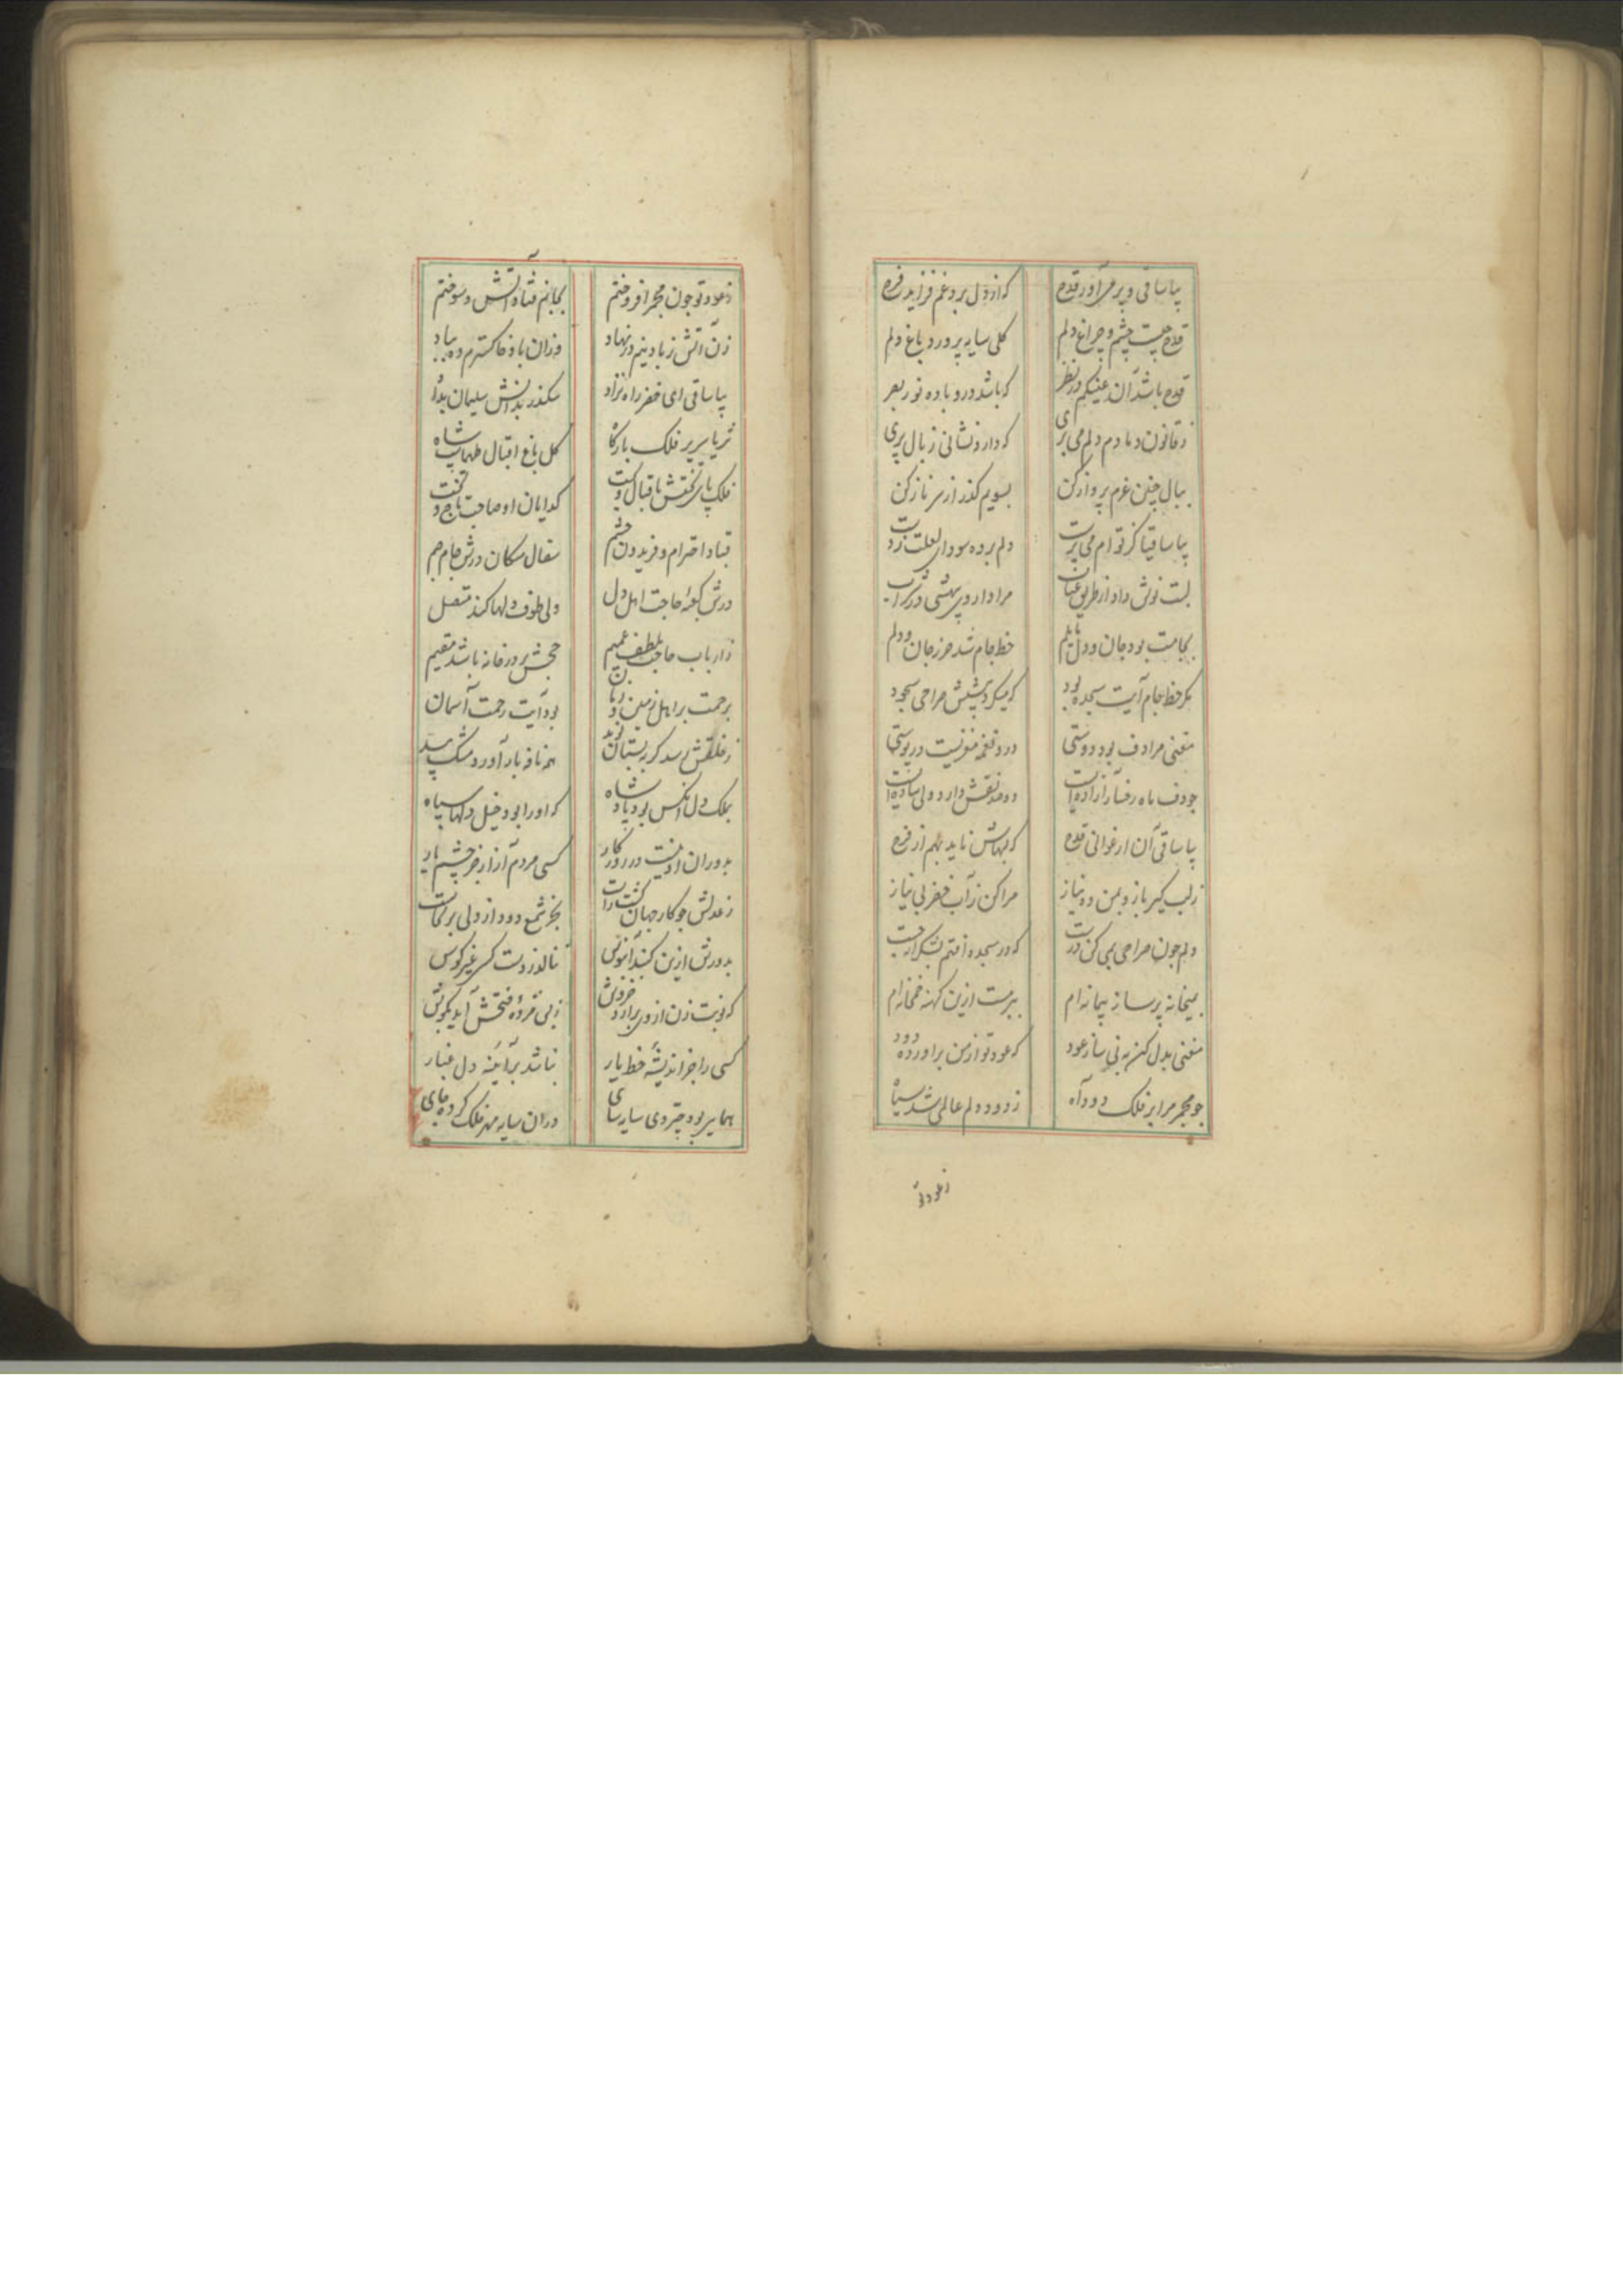 بیا ساقی و پر می آور قدح
که از دل برد غم فزاید فرح
قدح چیست چشم و چراغ دلم
کلی سایه پرورد باغ دلم
قدح باشد آن عینکم در نظر
که باشد درو باده نور بصر
ز قانون دمادم دلم می بری
که دارد نشانی ز بال پری
ببال چنین عزم پرواز کن
بسویم کذر از سر ناز کن
بیا ساقیا کز توام می پرست
دلم برده سودای لعلت ز دست
لبت نوش داد از طریق عتاب
مرا داروی بیهشی در شراب
بجامت بود جان و دل مایلم
خط جام شد حرز جان و دلم
مکر خط جام آیت سجده بود
که میکرد پیشش صراحی سجود
مغنی مرا دف بود دوستی
درو نغمه مغزیست در پوستی
جو دف ماه رخسار آزاده است
دو صد نقش دارد ولی ساده است
بیا ساقی آن ارغوانی قدح
که لبهاش ناید بهم از فرح
ز لب کیر باز و بمن ده نیاز
مرا کن ز آب خضر بی نیاز
دلم جون صراحی بمی کن درست
که در سجده افتم بشکر از نخست
بمیخانه پر ساز پیمانه ام
ببر مست ازین کهنه خمخانه ام
مغنی بدل کن به نی ساز عود
که عود تو از من براورده دود
جو مجمر مرا بر فلک دود آه
ز دود دلم عالمی شد سیاه
ز عود تو
ز عود تو جون مجمر افروختم
بجانم فتاد آتش و سوختم
زن آتش ز بادنیم در نهاد
وزان باد خاکسترم ده بباد
بیا ساقی ای خضر راه نژاد
سکندر بدانش سلیمان بداد
ثریا سریر فلک بارکاه
کل باغ اقبال طهماسب شاه
فلک پای تختش باقبال و بخت
کدایان او صاحب تاج و تخت
قباد احترام و فریدون حشم
سفال سکان درش جام جم
درش کعبهٔ حاجت اهل دل
ولی طوف دلها کند متصل
ز ارباب حاجت بلطف عمیم
حجش بر در خانه باشد مقیم
برحمت بر اهل زمین و زمان
بود آیت رحمت آسمان
ز خلقش رسد کر به بستان نوید
همه نافه بار آورد مشک بید
بملک دل آنکس بود پادشاه
که او را بود خیل دلها سپاه
بدوران او نیست در روزکار
کسی مردم آزار جز چشم یار
ز عدلش جو کار جهان کشت راست
بجز شمع دود از دلی برنخاست
بدورش ازین کنبد آبنوس
ننالد ز دست کسی غیر کوس
که نوبت زن از وی برارد خروش
زنی مژدهٔ فتحش آید بکوش
کسی را جز اندیشهٔ خط یار
نباشد بر آیینه دل غبار
همایی بود چتر وی سایه سای
در ان سایه مهر فلک کرده جای